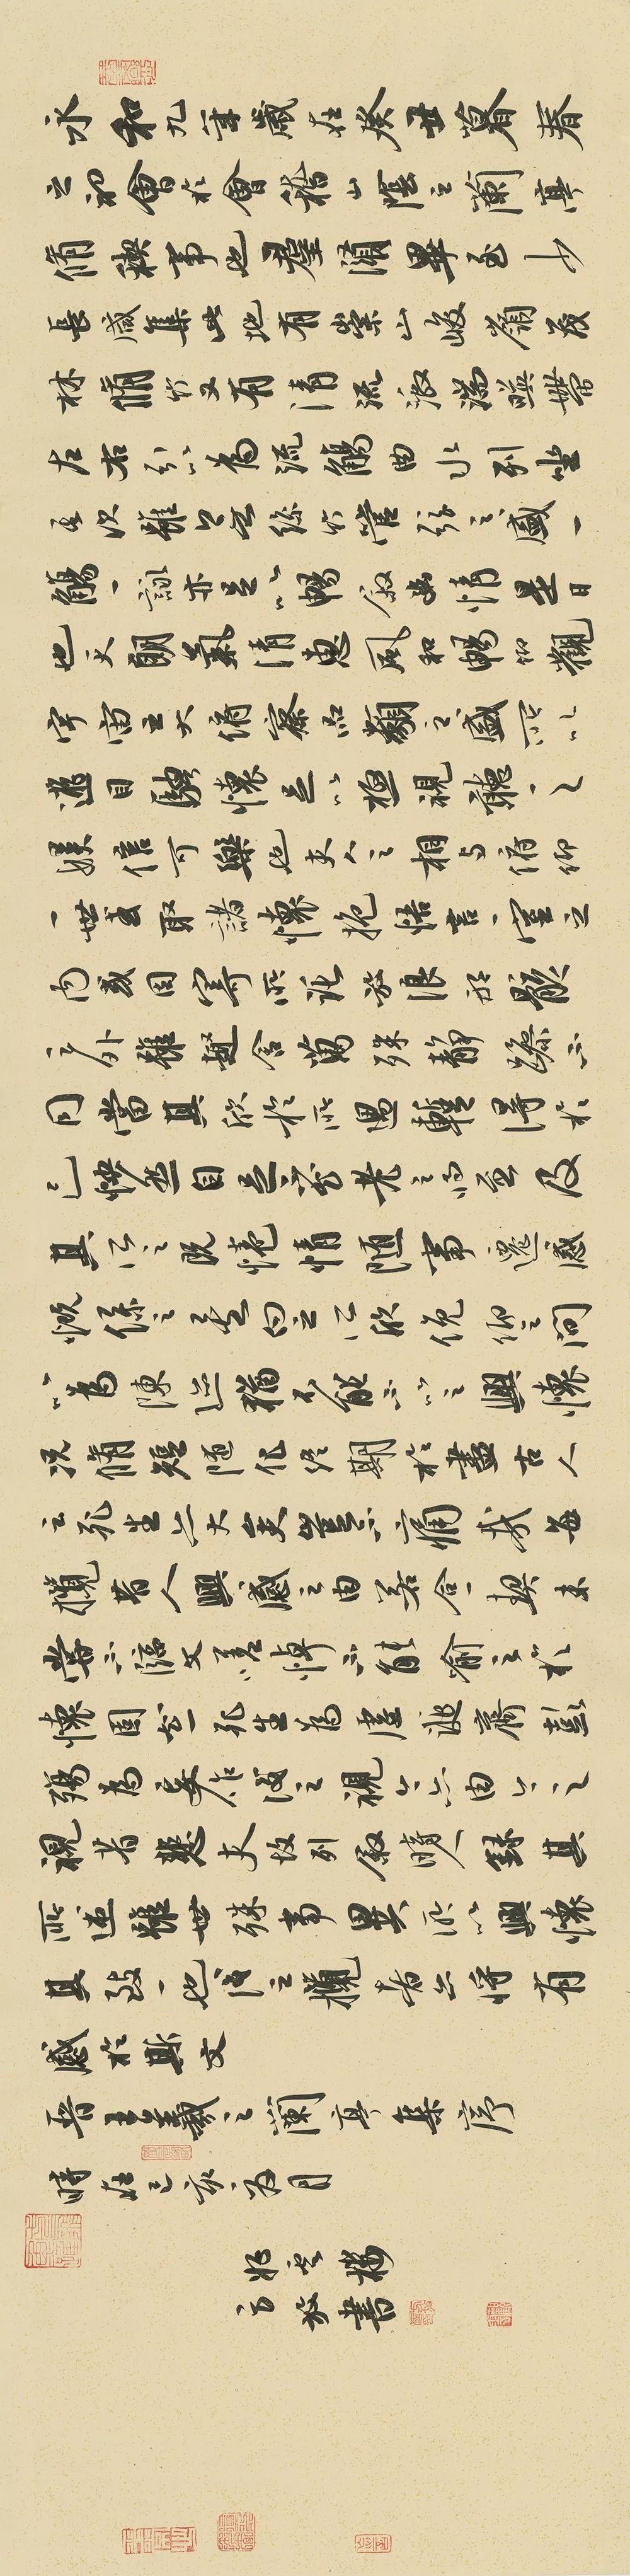 永和九年歲在癸丑暮春
之初會於會稽山陰之蘭亭
脩禊事也群賢畢至少
長咸集此地有崇山峻領茂
林脩竹又有清流激湍暎帶
左右引以為流觴曲水列坐
其次雖無絲竹管弦之盛一
觴一詠亦足以暢敘幽情是日
也天朗氣清惠風和暢仰觀
宇宙之大俯察品類之盛所以
遊目騁懷足以極視聽之
娛信可樂也夫人之相與俯仰
一世或取諸懷抱悟言一室之
內或因寄所託放浪形骸
之外雖趣舍萬殊靜躁不
同當其欣於所遇暫得於
己怏然自足不知老之將至及
其所之既惓情隨事遷感
慨係之矣向之所欣俛仰之間
以為陳迹猶不能不以之興懷
況脩短隨化終期於盡古人
云死生亦大矣豈不痛哉每
攬昔人興感之由若合一契未
嘗不臨文嗟悼不能喻之於
懷固知一死生為虛誕齊彭
殤為妄作後之視今亦由今之
視昔悲夫故列敘時人錄其
所述雖世殊事異所以興懷
其致一也後之攬者亦將有
感於斯文
晉王羲之蘭亭集序
時在己亥月
樓
書